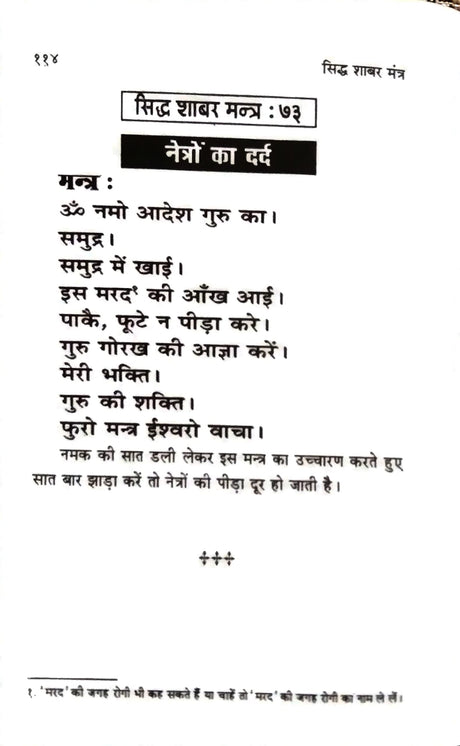 ११४
सिद्ध शाबर मंत्र
सिद्ध शाबर मन्त्र : ७३
नेत्रों का दर्द
मन्त्र :
ॐ नमो आदेश गुरु का।
समुद्र।
समुद्र में खाई।
इस मरद¹ की आँख आई।
पाकै, फूटे न पीड़ा करे।
गुरु गोरख की आज्ञा करें।
मेरी भक्ति।
गुरु की शक्ति।
फुरो मन्त्र ईश्वरो वाचा।
नमक की सात डली लेकर इस मन्त्र का उच्चारण करते हुए
सात बार झाड़ा करें तो नेत्रों की पीड़ा दूर हो जाती है।
१. 'मरद' की जगह रोगी भी कह सकते हैं या चाहें तो 'मरद' की जगह रोगी का नाम ले लें।